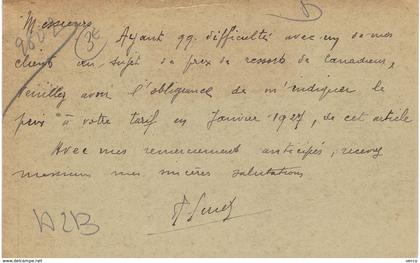 Messieurs
Ayant qq. difficulté avec un de mes
clients au sujet de prix de ressorts de Canadiens,
veuillez avoir l'obligeance de m'indiquer le
prix à votre tarif en Janvier 1927, de cet article
Avec mes remerciements anticipés, recevez
messieurs mes sincères salutations
A2B